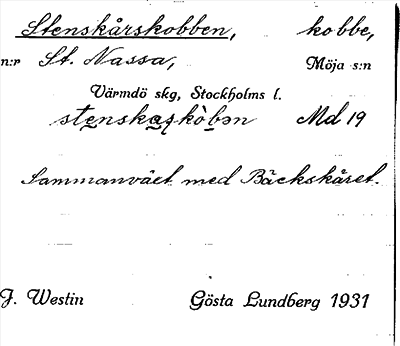 Stenskårskobben, kobbe,
n:r St. Nassa, Möja s:n
Värmdö skg, Stockholms l.
stenskaskòbən Md 19
Sammanväxt med Bäckskäret.
J. Westin Gösta Lundberg 1931